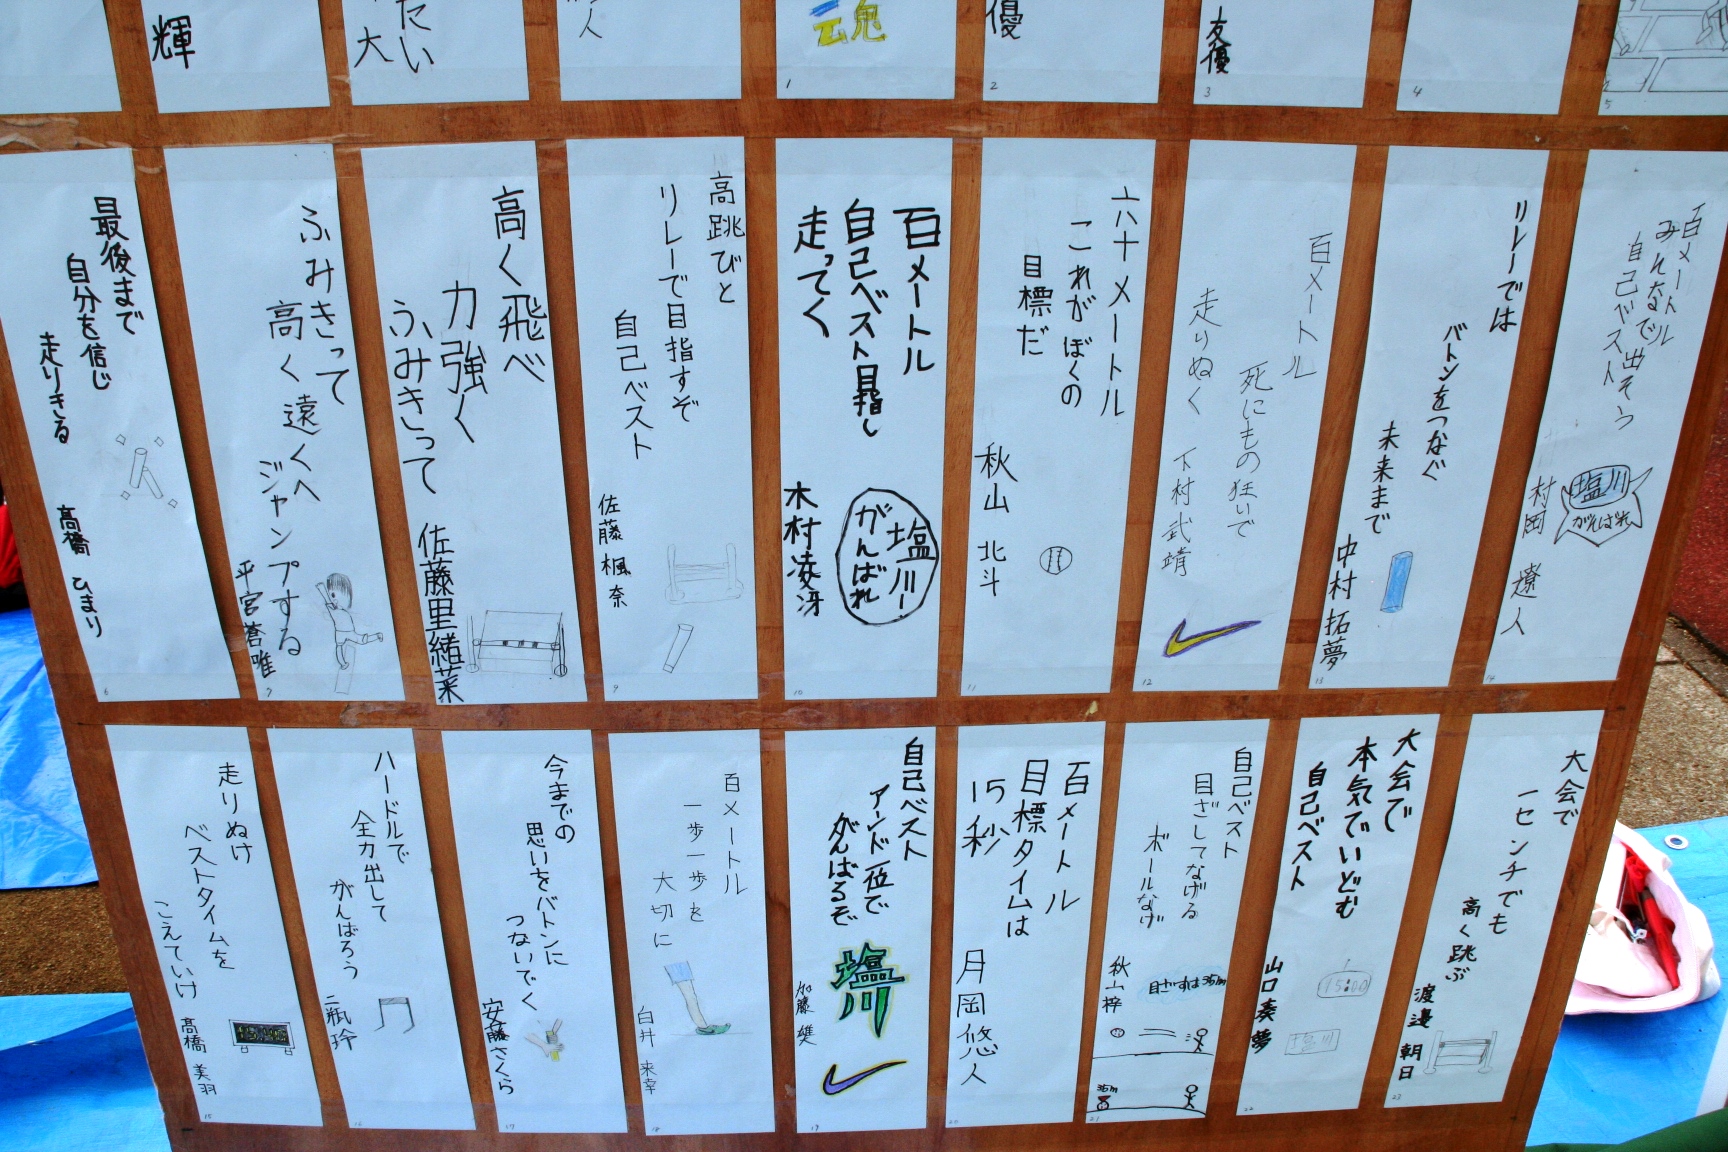 輝
たい
大
人
魂
1
優
2
友優
3
4
5
最後まで
自分を信じ
走りきる
髙橋 ひまり
6
ふみきって
高く遠くへ
ジャンプする
平宮 蒼唯
7
高く飛べ
力強く
ふみきって
佐藤里緒菜
高跳びと
リレーで目指すぞ
自己ベスト
佐藤 楓奈
9
百メートル
自己ベスト目指し
走ってく
塩川
がんばれ
木村凌冴
10
六十メートル
これがぼくの
目標だ
秋山 北斗
11
百メートル
死にもの狂いで
走りぬく
下村武靖
12
リレーでは
バトンをつなぐ
未来まで
中村 拓夢
13
百メートル
みんなで出そう
自己ベスト
塩川
がんばれ
村岡 遼人
14
走りぬけ
ベストタイムを
こえていけ
髙橋 美羽
15
ハードルで
全力出して
がんばろう
二瓶 玲
16
今までの
思いをバトンに
つないでく
安藤さくら
17
百メートル
一歩一歩を
大切に
白井 来幸
18
自己ベスト
アンド一位で
がんばるぞ
塩川
加藤
19
百メートル
目標タイムは
15秒
月岡悠人
20
自己ベスト
目ざしてなげる
ボールなげ
目ざすは35m
秋山梓
35m
21
大会で
本気でいどむ
自己ベスト
15:00
塩川
山口奏夢
22
大会で
一センチでも
高く跳ぶ
渡邉 朝日
23